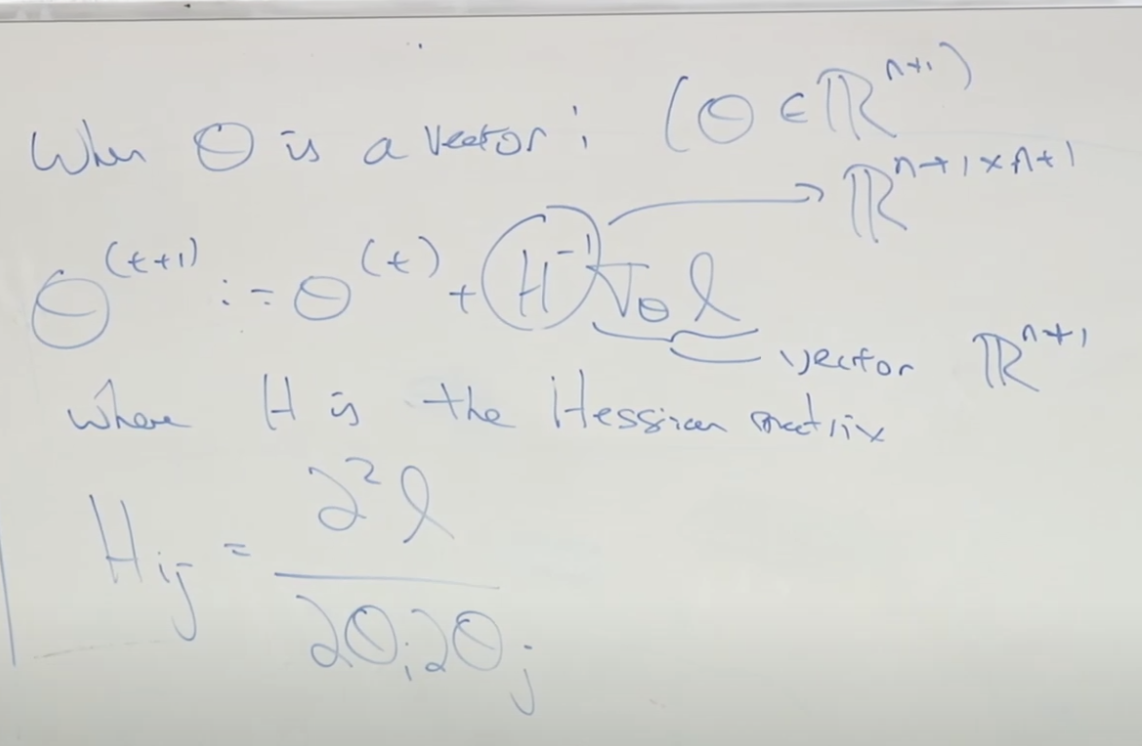 When Θ is a vector: (Θ ∈ ℝ^(n+1))
ℝ^(n+1×n+1)
Θ^(t+1) := Θ^(t) + H^(-1) ∇_Θ ℓ
vector ℝ^(n+1)
where H is the Hessian matrix
H_ij = ∂²ℓ / ∂Θ_i ∂Θ_j